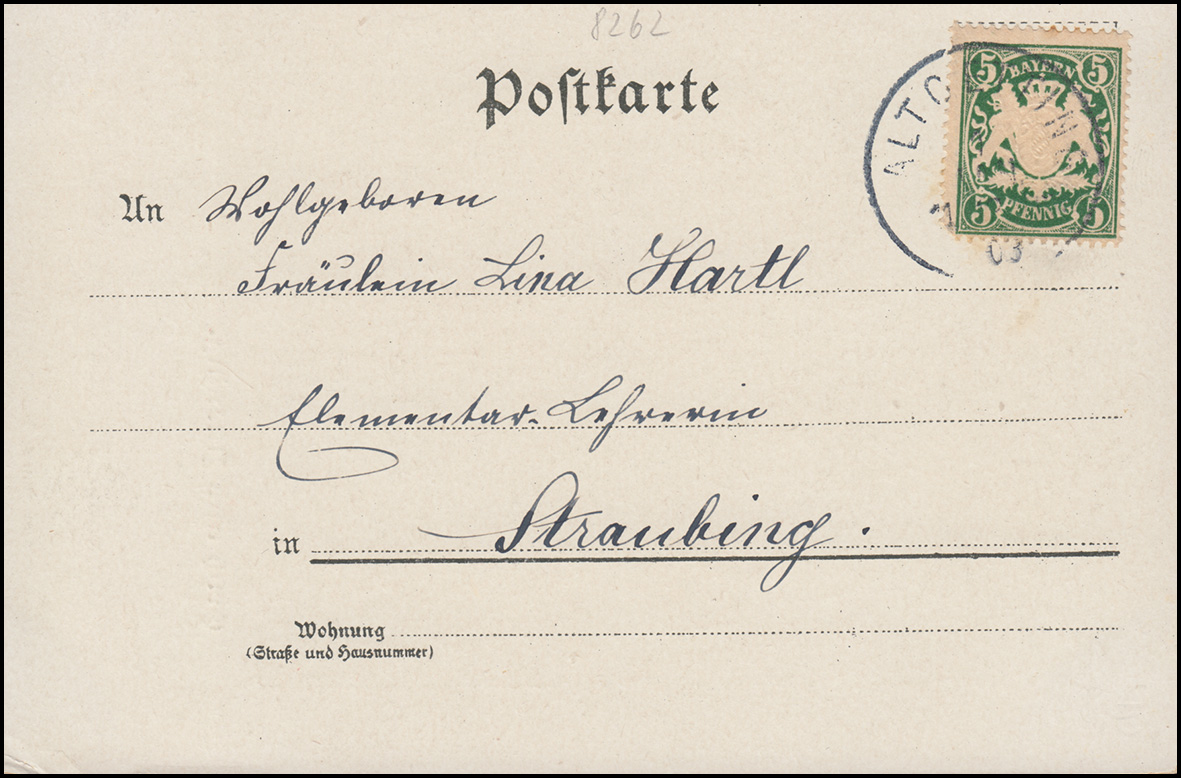 8262
Postkarte
5 BAYERN 5
5 PFENNIG 5
03
An Wohlgeboren
Fräulein Lina Hartl
Elementar-Lehrerin
in Straubing.
Wohnung
(Straße und Hausnummer)